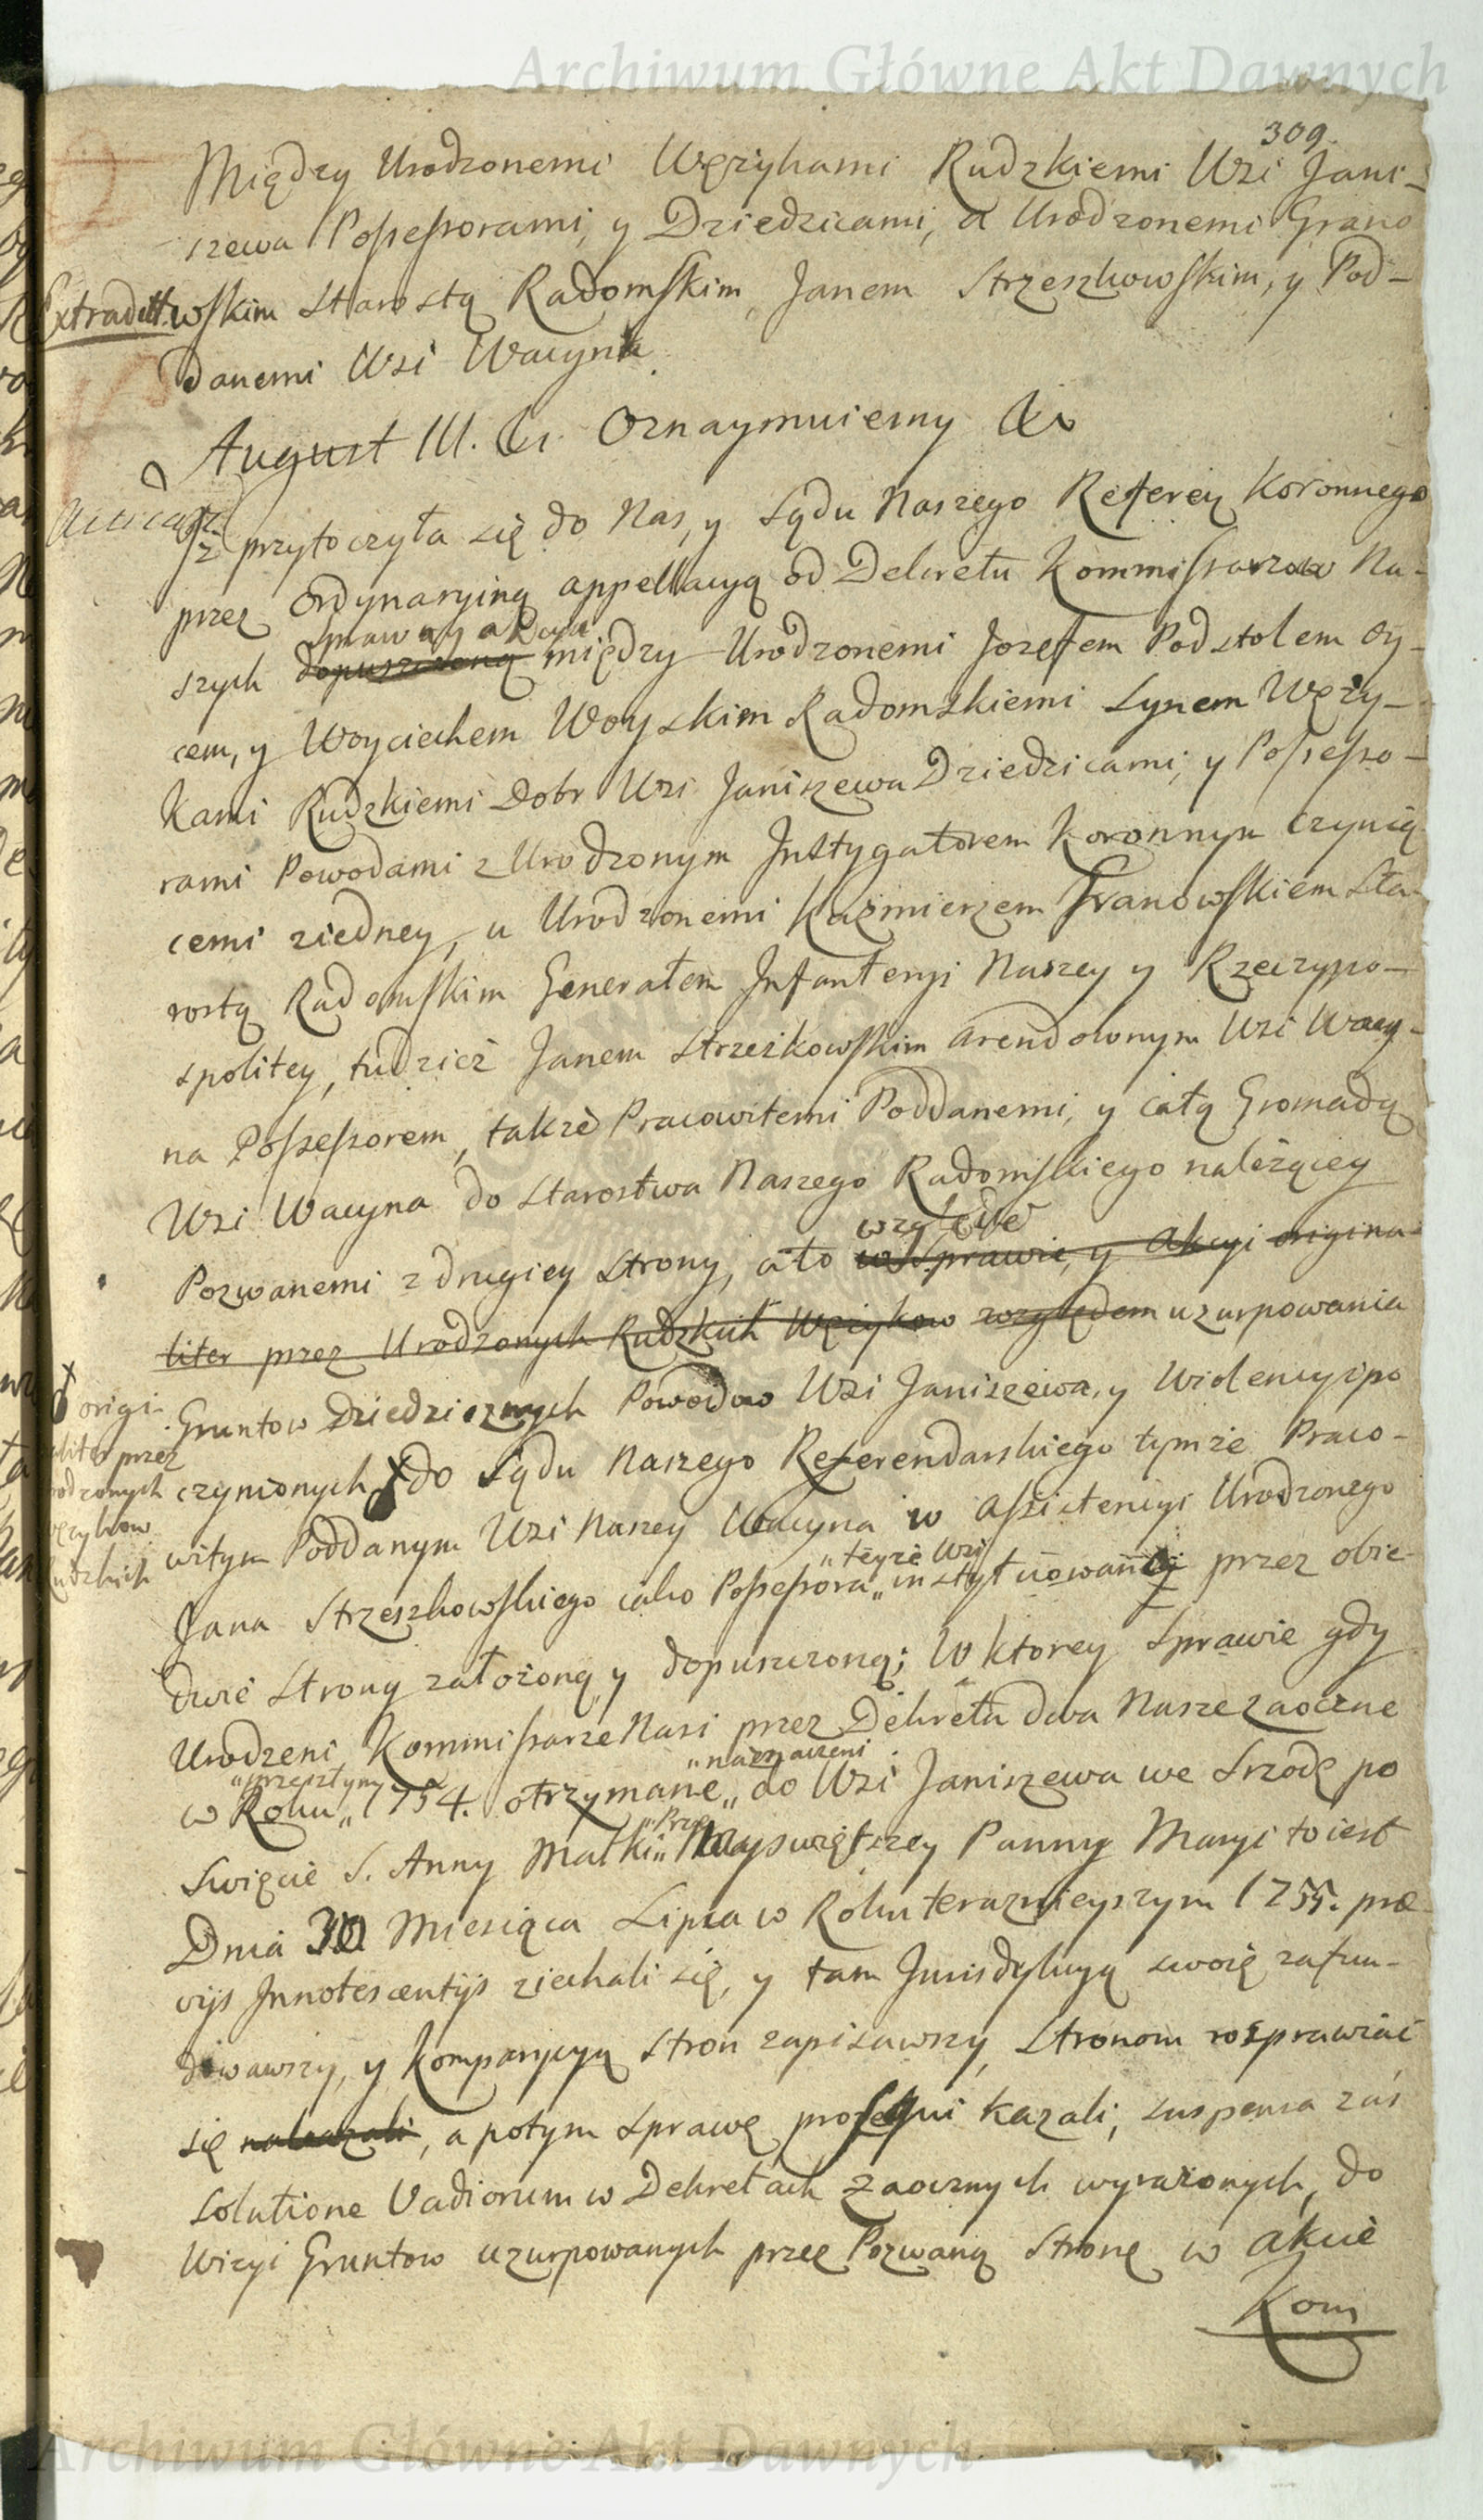 Archiwum Główne Akt Dawnych
309.
Między Urodzonemi Wężykami Rudzkiemi Wsi Jani-
szewa Possessorami, y Dziedzicami, a Urodzonemi Grano
Extradit. wskim Starostą Radomskim, Janem Strzeszkowskim, y Pod-
danemi Wsi Wacyna.
August III. &c. Oznaymuiemy &c
Iż przytoczyła się do Nas, y Sądu Naszego Referen Koronnego
przez Ordynaryiną appellacyą od Dekretu Kommissarzow Na-
Sprawa y akcya
szych dopuszczoną między Urodzonemi Jozefem Podstolem Oy-
cem, y Woyciechem Woyskim Radomskiemi Synem Węży-
kami Rudzkiemi Dobr Wsi Janiszewa Dziedzicami, y Possesso-
rami Powodami z Urodzonym Instygatorem Koronnym czynią
cemi ziedney, a Urodzonemi Kazmierzem Granowskiem Sta-
rostą Radomskim Generałem Infanteryi Naszey y Rzeczypo-
spolitey, tudzież Janem Strzeżkowskim arendownym Wsi Wacy-
na Possessorem, także Pracowitemi Poddanemi, y całą Gromadą
Wsi Wacyna do Starostwa Naszego Radomskiego należącey
względē
Pozwanemi z drugiey Strony, a to w Sprawie, y Akcyi origina-
liter przez Urodzonych Rudzkich Wężykow względem uzurpowania
Gruntow Dziedzicznych Powodow Wsi Janiszewa, y Wiolencyi po
czynionych do Sądu Naszego Referendarskiego tymże Praco-
origi-
naliter przez
rodzonych
Wężykow
Rudzkich
witym Poddanym Wsi Naszey Wacyna w Assistencyi Urodzonego
"teyże Wsi
Jana Strzeszkowskiego iako Possessora" instytuowaney przez obie-
dwie Strony założoną y dopuszczoną; W ktorey Sprawie gdy
Urodzeni Kommissarze Nasi przez Dekreta dwa Nasze zaoczne
"przeszłym "naznaczeni
w Roku" 1754. otrzymane" do Wsi Janiszewa we Srzodę po
"Prze
Swięcie S. Anny Matki" Nayswiętszey Panny Maryi to iest
Dnia 30 Miesiąca Lipca w Roku teraznieyszym 1755. præ-
vijs Innotescentijs ziechali się, y tam Jurisdykcyą swoię zafun-
dowawszy, y Komparycyą Stron zapisawszy, Stronom rozprawiać
się nakazali, a potym Sprawę prosequi kazali, suspensa zaś
Solutione Vadiorum w Dekretach zaocznych wyrażonych, do
Wizyi Gruntow uzurpowanych przez Pozwaną Stronę w akcie
Kom
Archiwum Główne Akt Dawnych